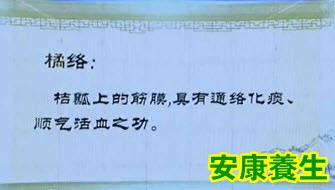 橘络:
桔瓤上的筋膜,具有通络化痰、
顺气活血之功。
安康養生